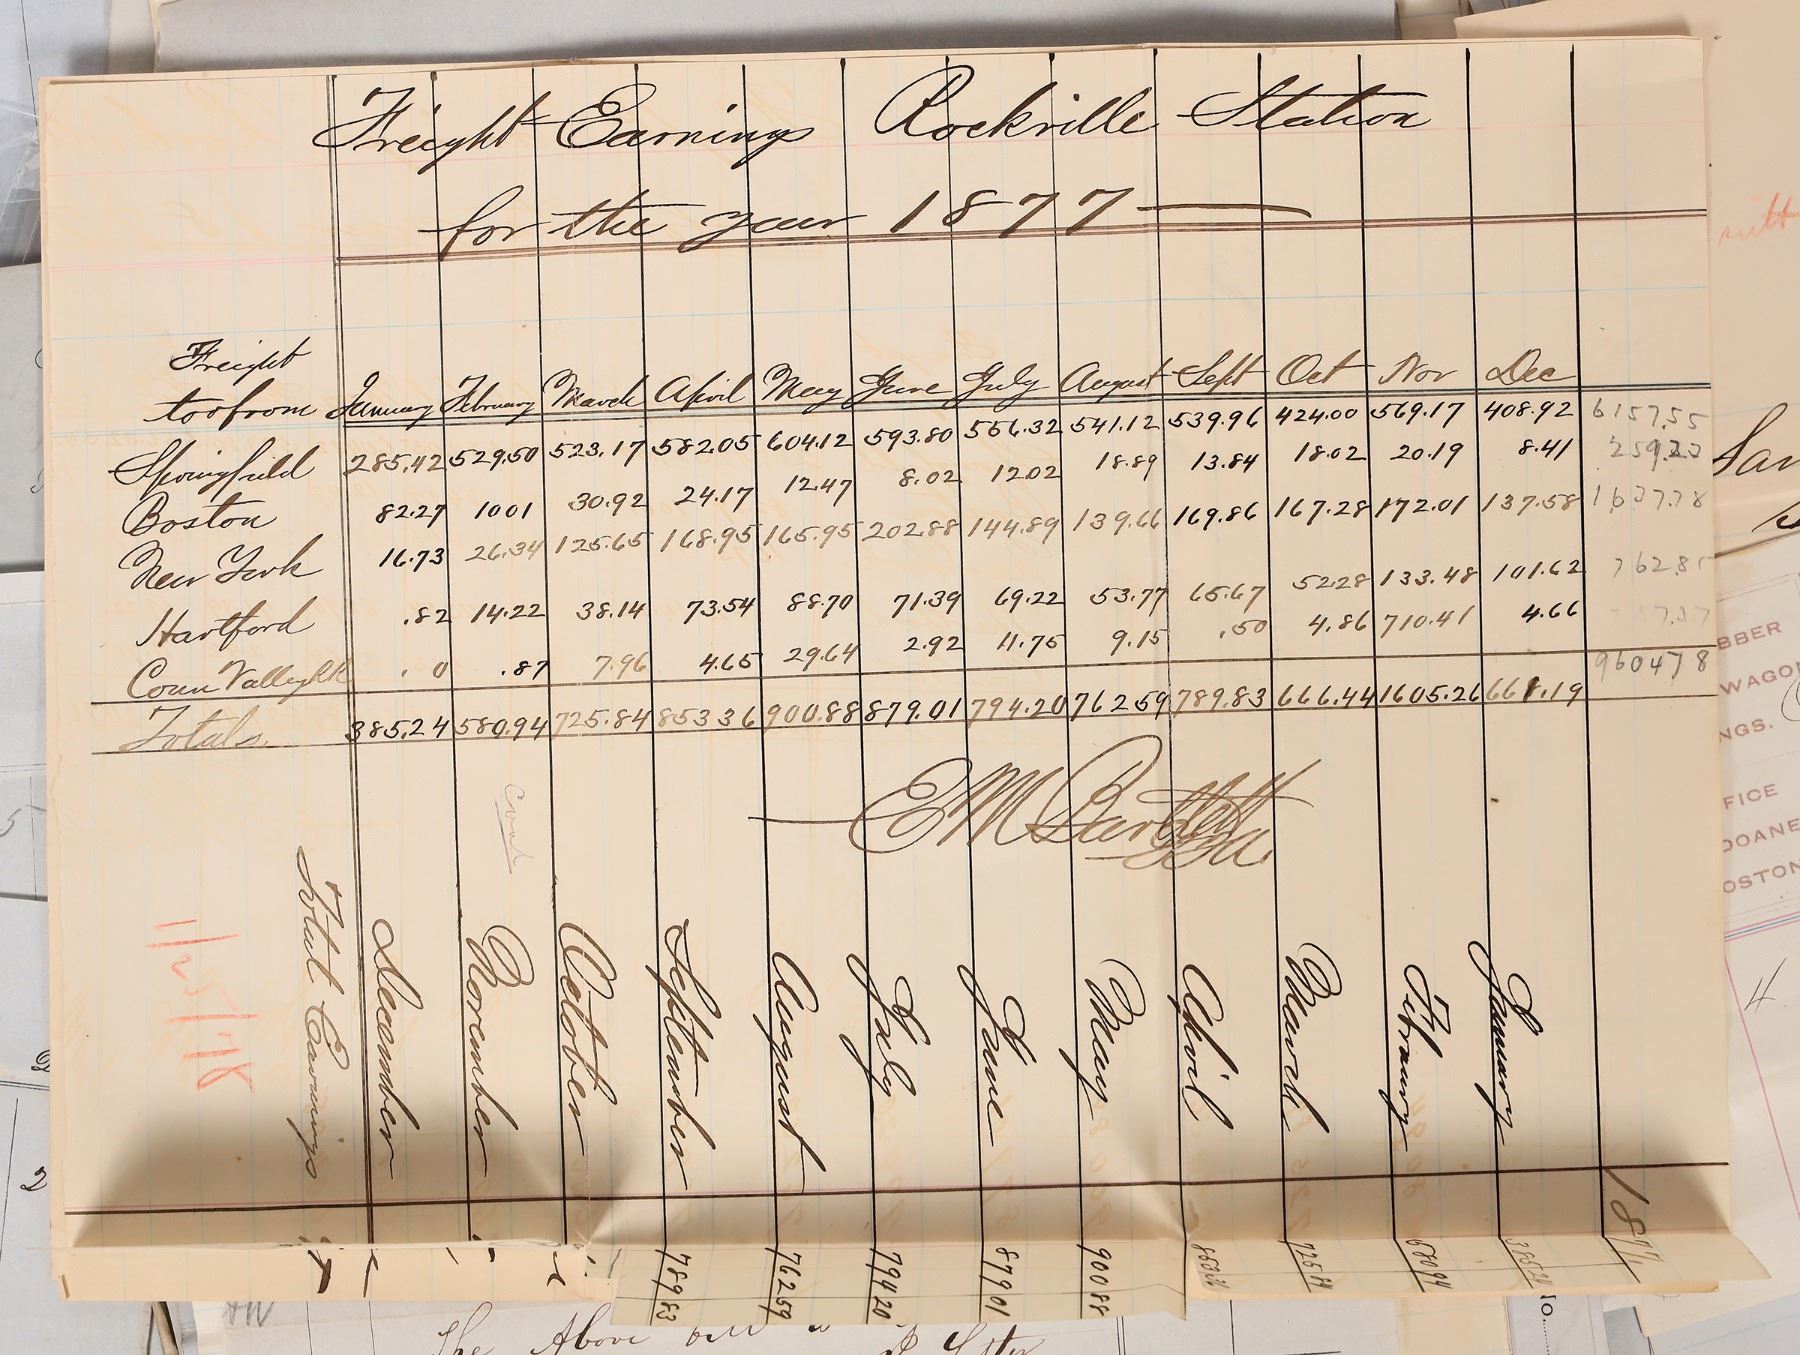 Freight Earnings Rockville Station
for the year 1877
Freight
to or from January February March April May June July August Sept Oct Nov Dec
Springfield 285.42 529.50 523.17 582.05 604.12 593.80 556.32 541.12 539.96 424.00 569.17 408.92 6157.55
Boston 82.27 1001 30.92 24.17 12.47 8.02 12.02 18.89 13.84 18.02 20.19 8.41 259.23
New York 16.73 26.34 125.65 168.95 165.95 202.88 144.89 139.66 169.86 167.28 172.01 137.58 1637.78
Hartford .82 14.22 38.14 73.54 88.70 71.39 69.22 53.77 65.67 52.28 133.48 101.62
Conn Valley RR . 0 .87 7.96 4.65 29.64 2.92 11.75 9.15 .50 4.86 710.41 4.66
Totals 385.24 580.94 725.84 853 36 900.88 879.01 794.20 762 59 789.83 666.44 1605.26 661.19 960478
E M Bartlett
1/25/78
Total Earnings
December
November
October
September 789 83
August 762 59
July 794 20
June 879 01
May 900 88
April
March 725 84
February 580 94
January 385 24
1877
BBER
WAGO
NGS.
FICE
DOANE
OSTON
4
2
2
No.
The Above